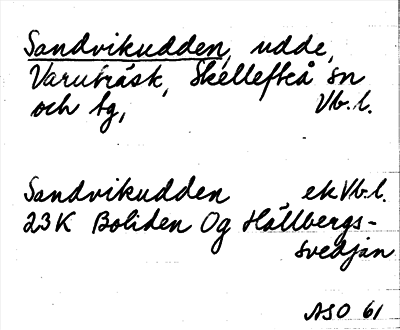 Sandvikudden, udde,
Varuträsk, Skellefteå sn
och tg, Vb.l.
Sandvikudden ekVb.l.
23K Boliden Og Hällbergs-
svedjan
ASO 61